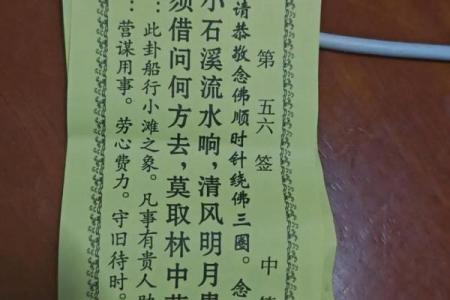 第 五六 签 中
请恭敬念佛顺时针绕佛三圈。念
小石溪流水响，清风明月
须借问何方去，莫取林中
：此卦船行小滩之象。凡事有贵人助
：营谋用事。劳心费力。守旧待时。